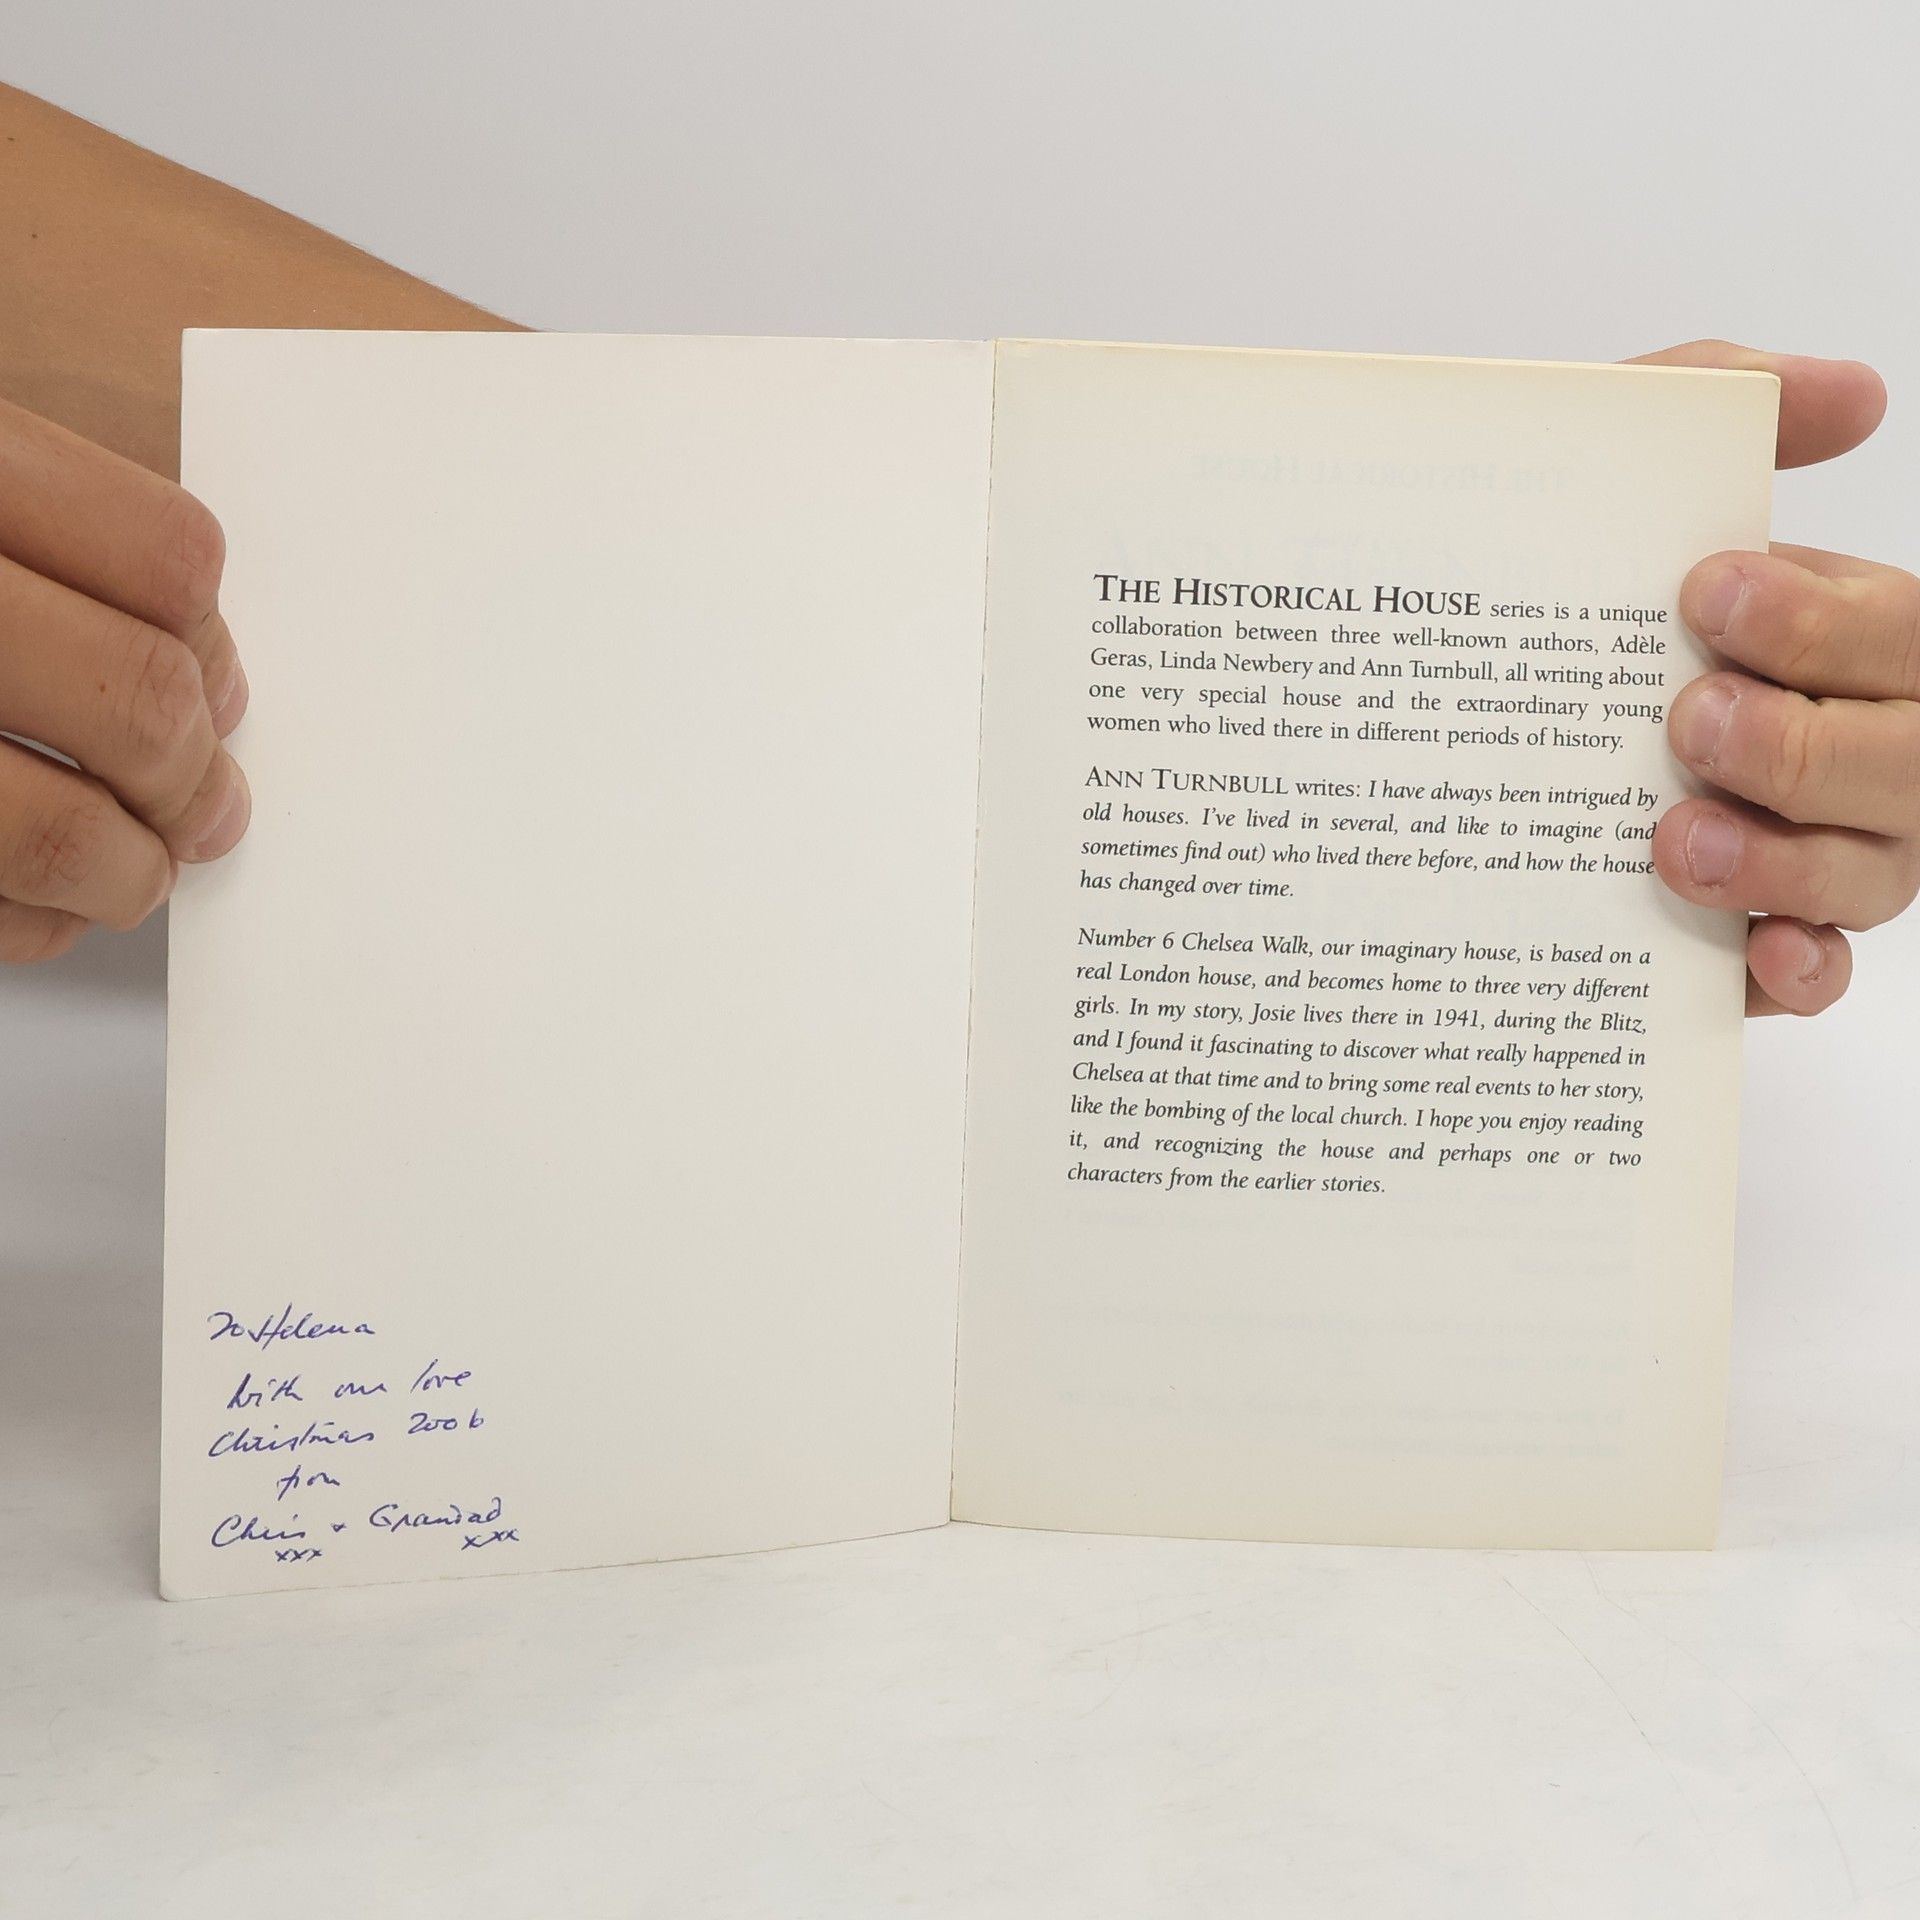 To Helena
With our love
Christmas 2006
from
Chris + Grandad
xxx xxx
THE HISTORICAL HOUSE series is a unique
collaboration between three well-known authors, Adèle
Geras, Linda Newbery and Ann Turnbull, all writing about
one very special house and the extraordinary young
women who lived there in different periods of history.
ANN TURNBULL writes: I have always been intrigued by
old houses. I've lived in several, and like to imagine (and
sometimes find out) who lived there before, and how the house
has changed over time.
Number 6 Chelsea Walk, our imaginary house, is based on a
real London house, and becomes home to three very different
girls. In my story, Josie lives there in 1941, during the Blitz,
and I found it fascinating to discover what really happened in
Chelsea at that time and to bring some real events to her story,
like the bombing of the local church. I hope you enjoy reading
it, and recognizing the house and perhaps one or two
characters from the earlier stories.